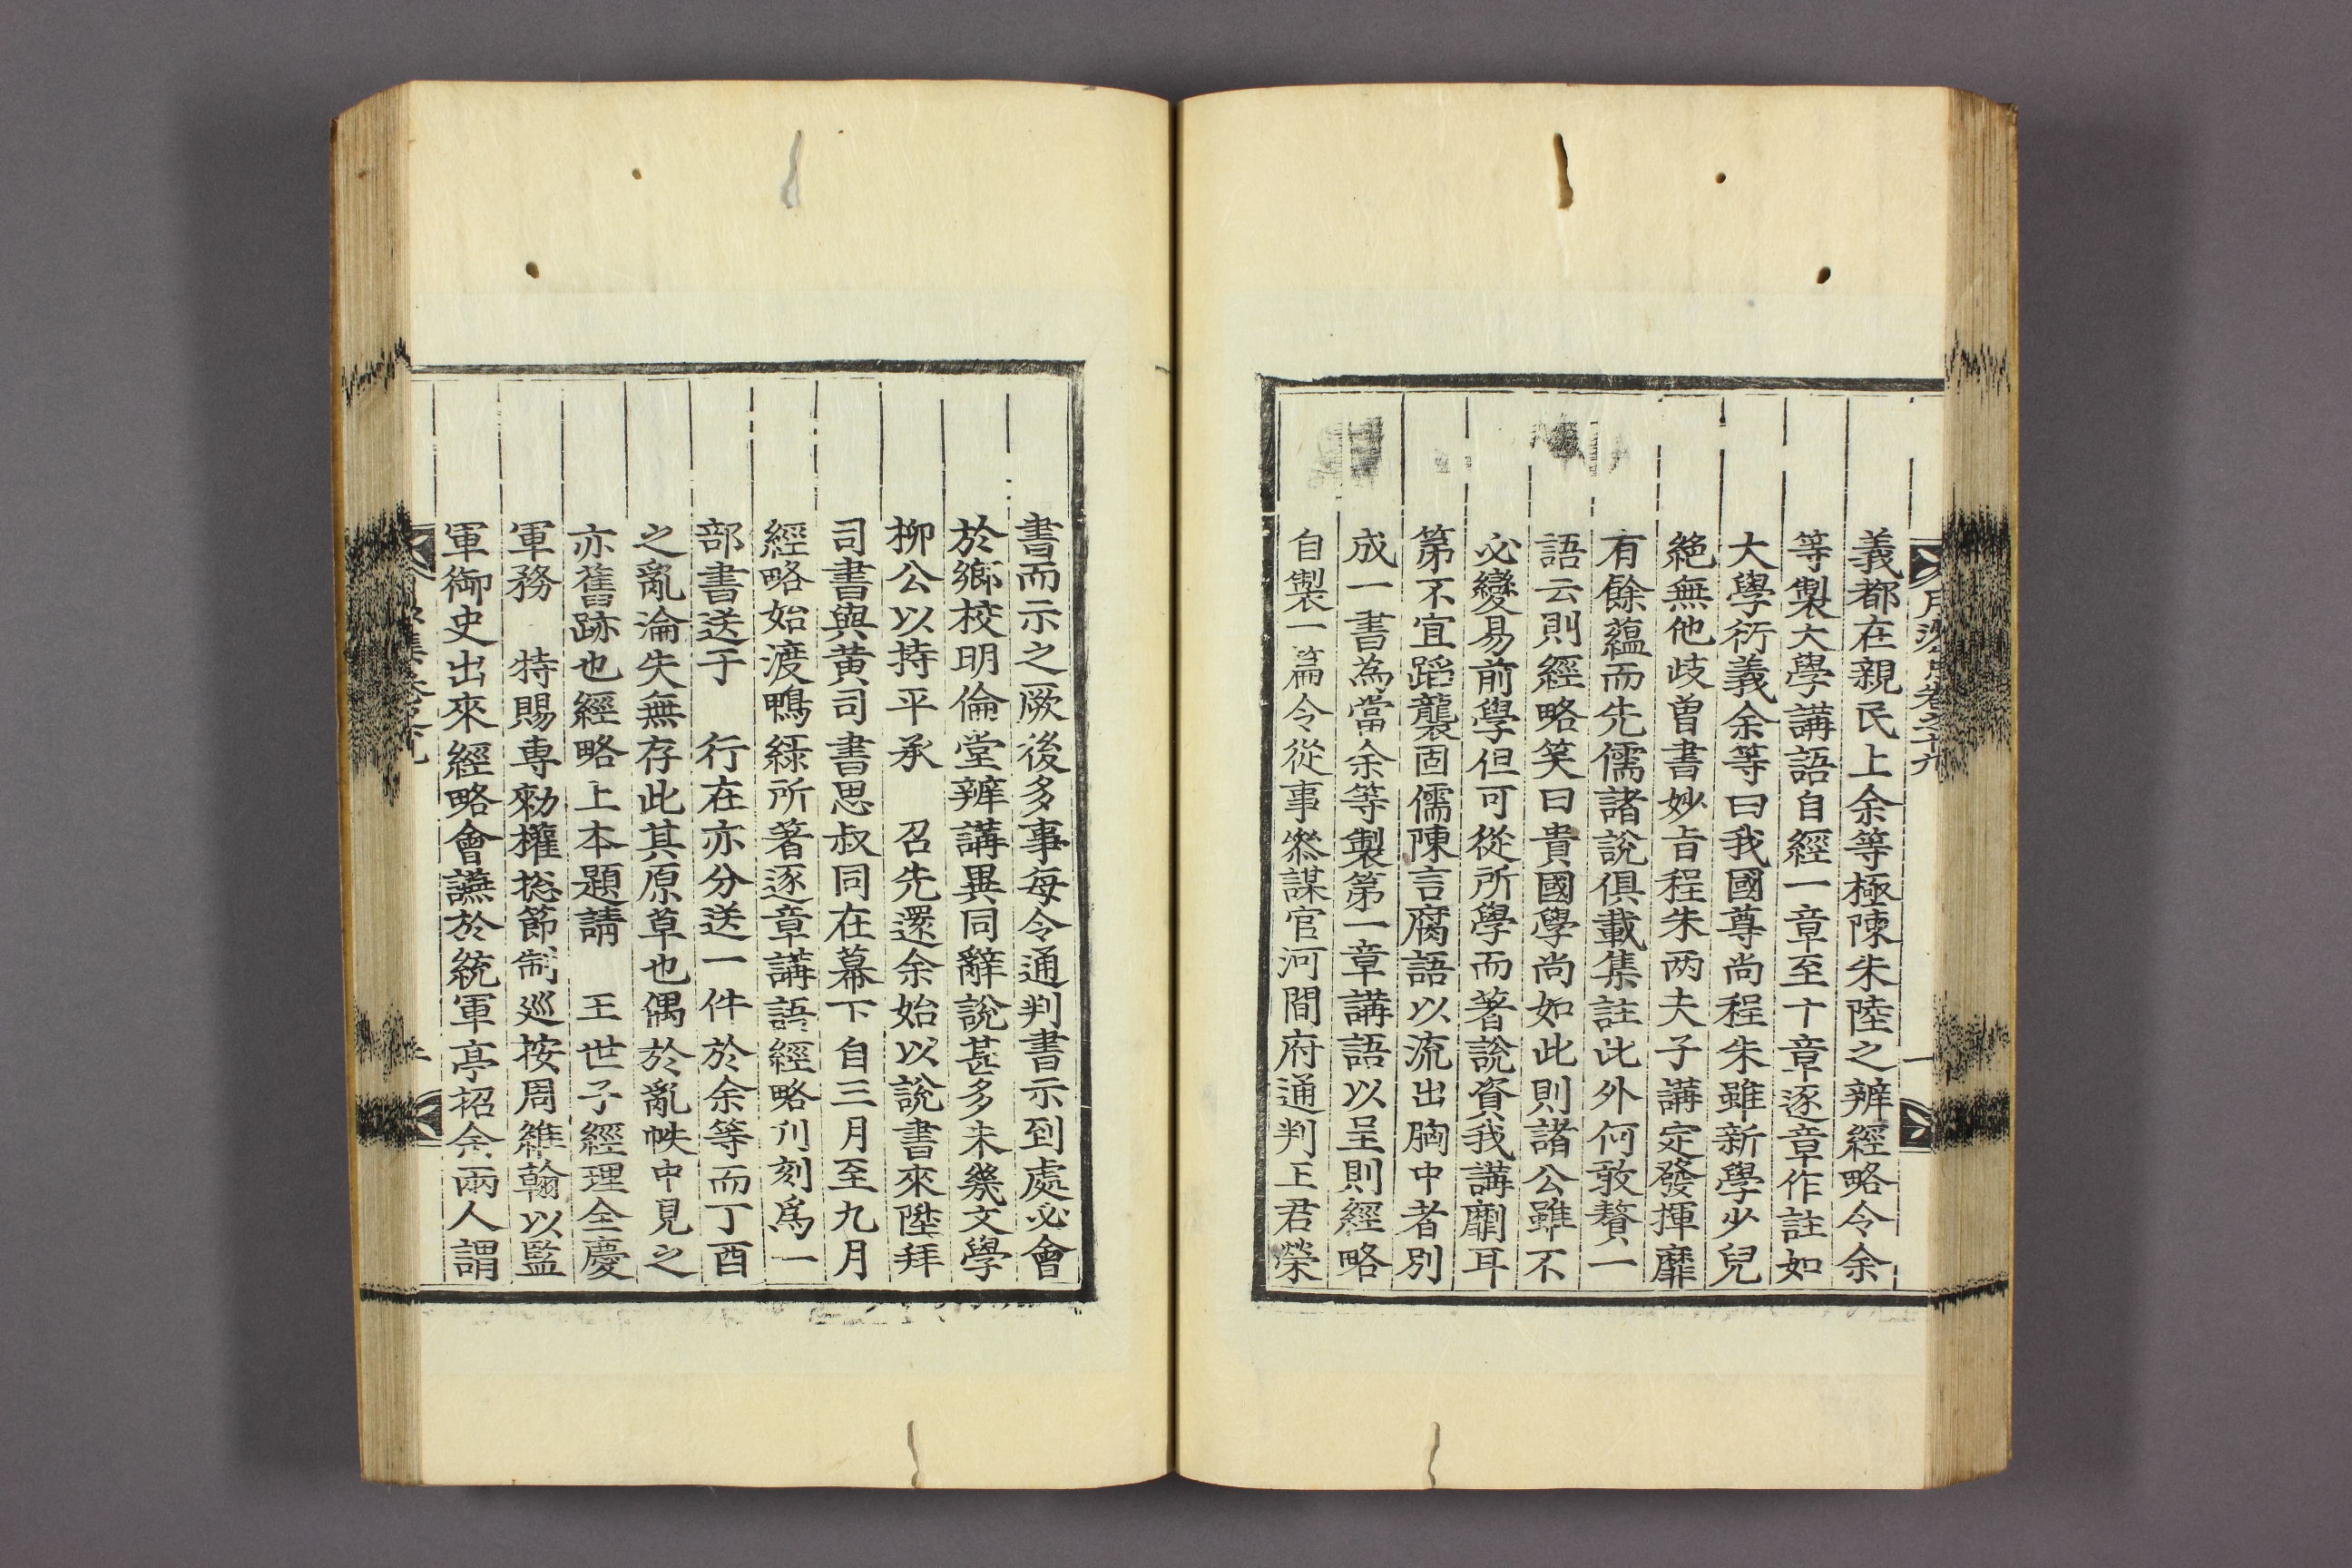 月沙集卷之十九
一
義都在親民上余等極陳朱陸之辨經略令余
等製大學講語自經一章至十章逐章作註如
大學衍義余等曰我國尊尚程朱雖新學少兒
絶無他歧曾書妙旨程朱两夫子講定發揮靡
有餘蘊而先儒諸說俱載集註此外何敢贅一
語云則經略笑曰貴國學尚如此則諸公雖不
必變易前學但可從所學而著說資我講劘耳
第不宜蹈襲固儒陳言腐語以流出胸中者別
成一書為當余等製第一章講語以呈則經略
自製一篇令從事叅謀官河間府通判王君榮
書而示之厥後多事每令通判書示到處必會
於鄉校明倫堂辨講異同辭說甚多未幾文學
柳公以持平承　召先還余始以說書來陞拜
司書與黄司書思叔同在幕下自三月至九月
經略始渡鴨綠所著逐章講語經略刋刻爲一
部書送于　行在亦分送一件於余等而丁酉
之亂淪失無存此其原草也偶於亂帙中見之
亦舊跡也經略上本題請　王世子經理全慶
軍務　特賜専勑權捴節制巡按周維翰以監
軍御史出來經略會讌於統軍亭招余兩人謂